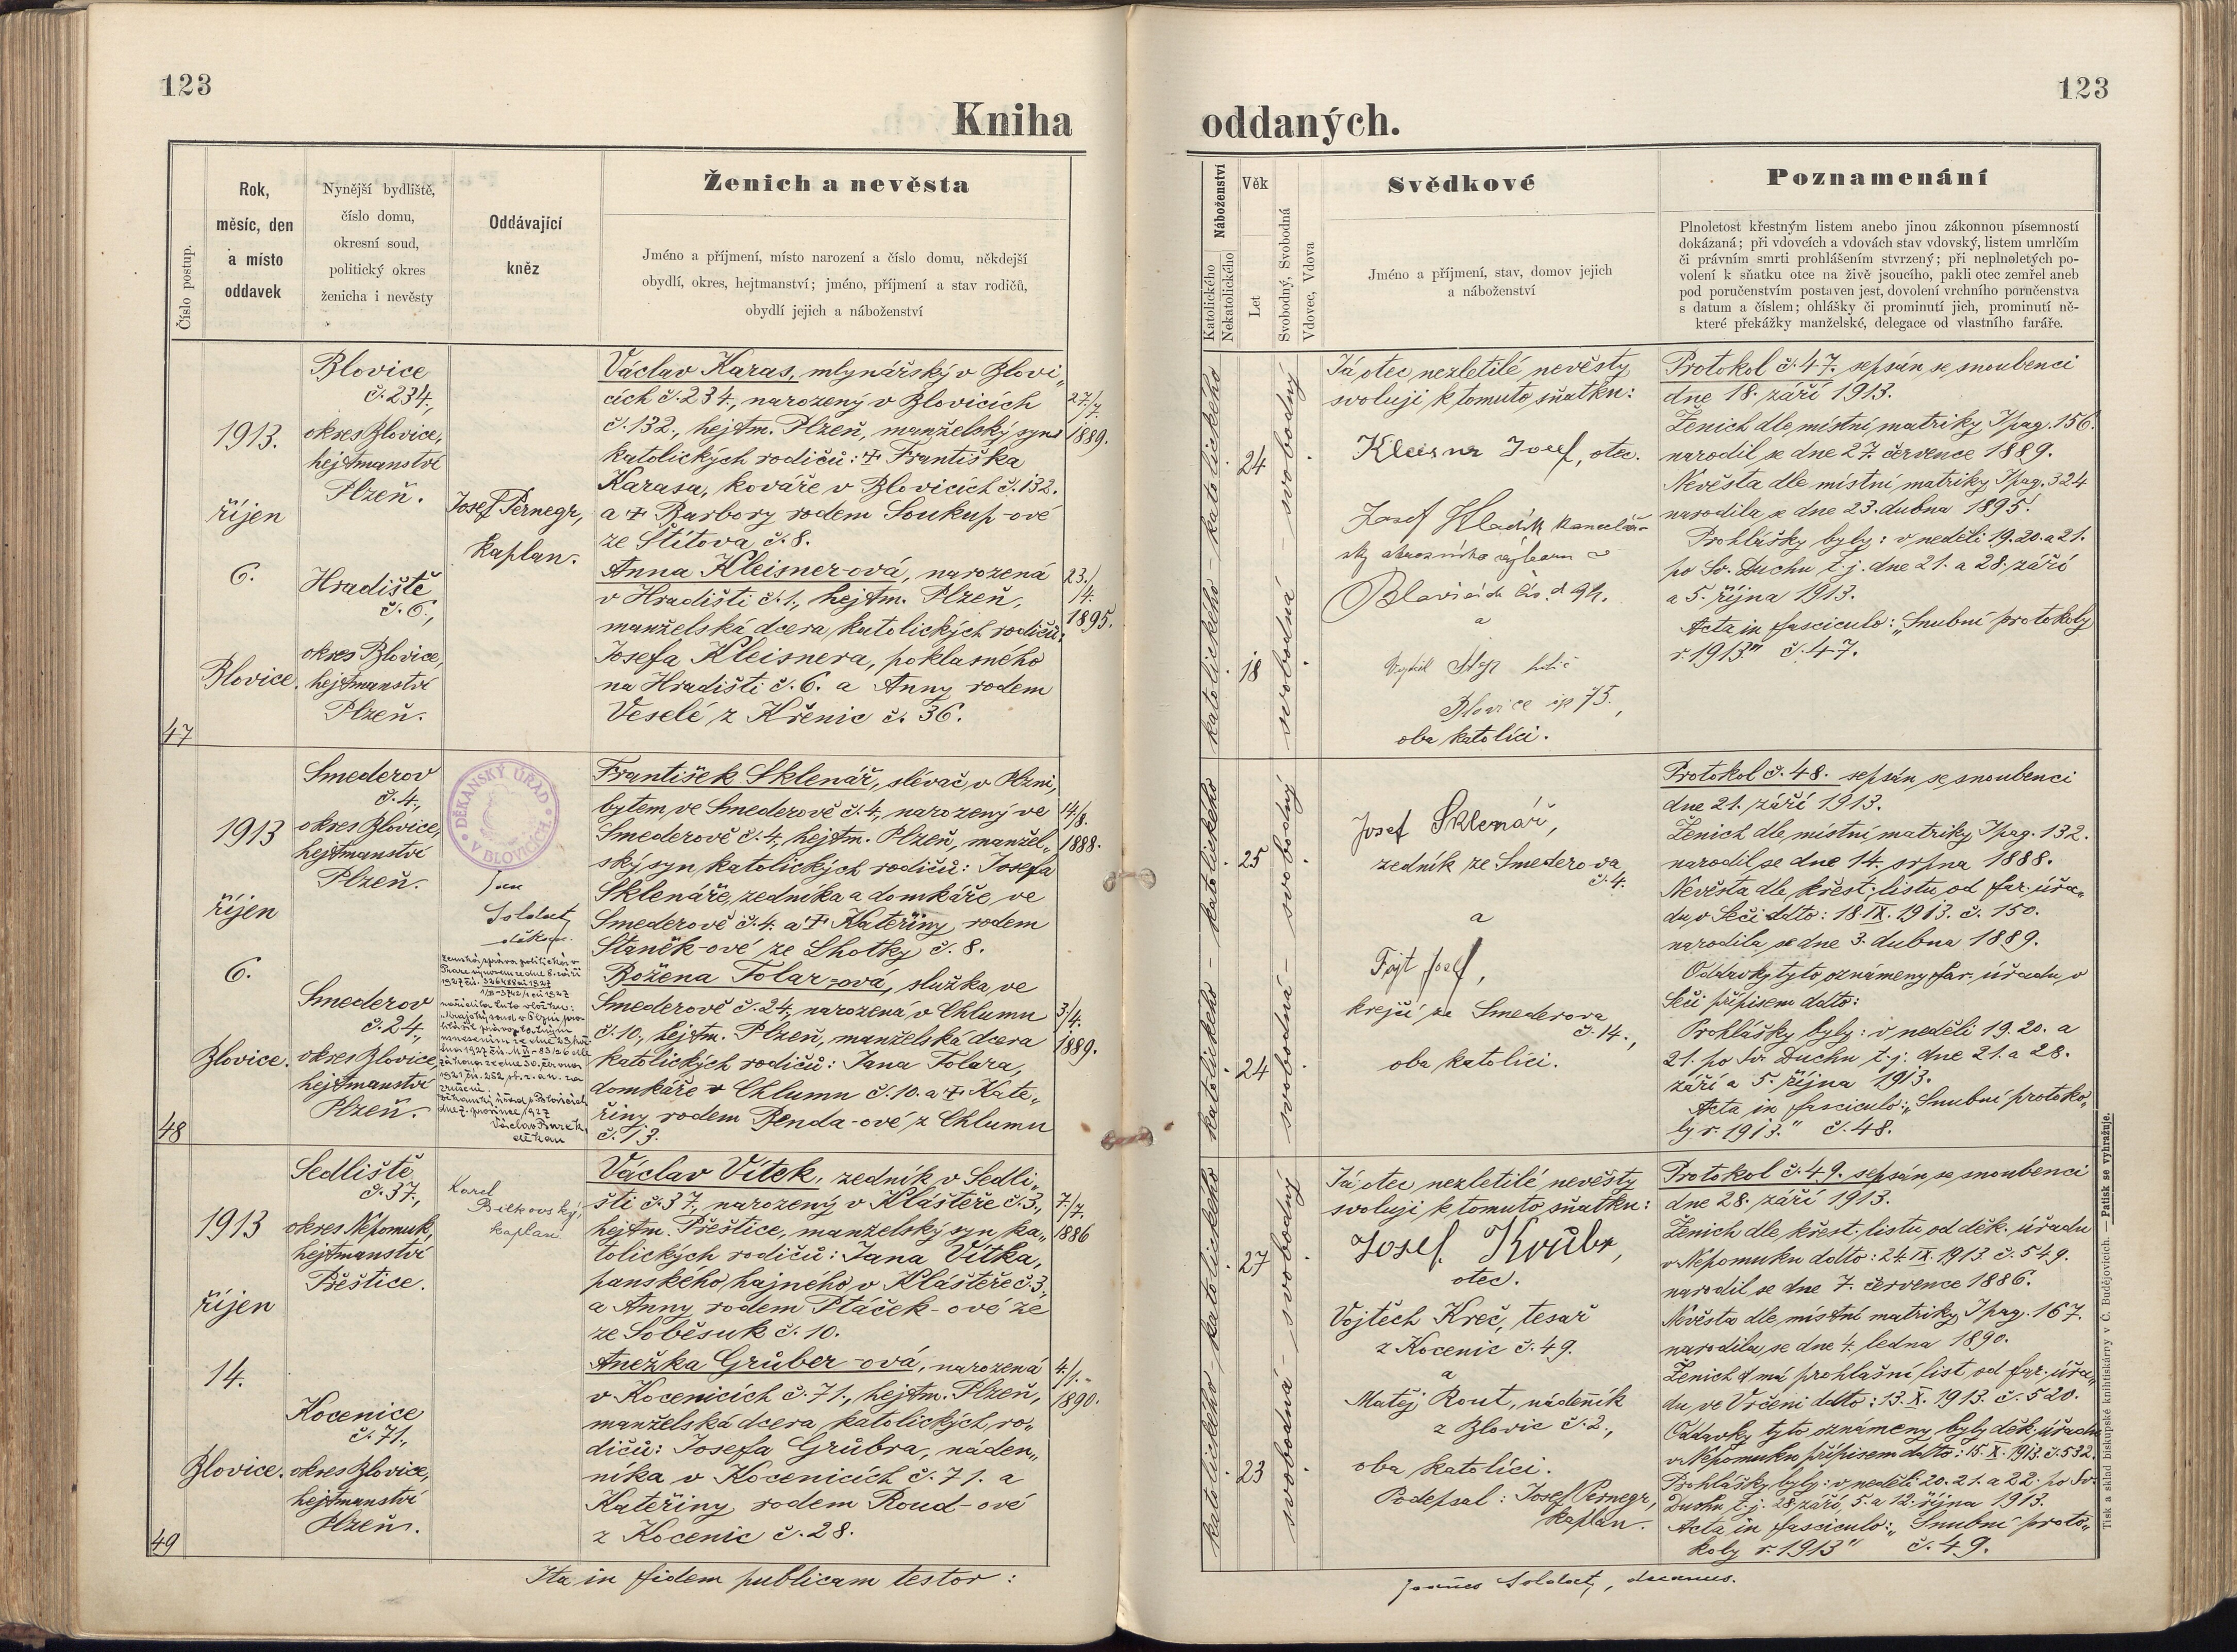 123
123
Kniha
oddaných.
Číslo postup.
Rok,
měsíc, den
a místo
oddavek
Nynější bydliště,
číslo domu,
okresní soud,
politický okres
ženicha i nevěsty
Oddávající
kněz
Ženich a nevěsta
Jméno a příjmení, místo narození a číslo domu, někdejší
obydlí, okres, hejtmanství; jméno, příjmení a stav rodičů,
obydlí jejich a náboženství
47
1913.
říjen
6.
Blovice.
Blovice
č. 234.,
okres Blovice,
hejtmanství
Plzeň.
Hradiště
č. 6.,
okres Blovice,
hejtmanství
Plzeň.
Josef Pernegr,
kaplan.
Václav Karas, mlynářský v Blovi„
cích č. 234., narozený v Blovicích
č. 132., hejtm. Plzeň, manželský syn
katolických rodičů: † Františka
Karasa, kováře v Blovicích č. 132.
a † Barbory rodem Soukup-ové
ze Štítova č. 8.
27./7.
1889.
Anna Kleisner-ová, narozená
v Hradišti č. 1., hejtm. Plzeň,
manželská dcera katolických rodičů:
Josefa Kleisnera, poklasného
na Hradišti č. 6. a Anny rodem
Veselé z Křenic č. 36.
23./4.
1895.
48
1913
říjen
6.
Blovice.
Smederov
č. 4.,
okres Blovice,
hejtmanství
Plzeň.
Smederov
č. 24.,
okres Blovice,
hejtmanství
Plzeň.
DĚKANSKÝ ÚŘAD
V BLOVICÍCH
Jan
Soldát,
děkan.
Zemská správa politická v
Praze výnosem ze dne 8. září
1927
nařídila tuto vložku:
Krajský soud v Plzni pro-
Děkanský úřad v Blovicích
1927
Václav
děkan
František Sklenář, slévač v Plzni,
bytem ve Smederově č. 4, narozený ve
Smederově č. 4., hejtm. Plzeň, manžel„
ský syn katolických rodičů: Josefa
Sklenáře, zedníka a domkáře ve
Smederově č. 4. a † Kateřiny rodem
Staněk-ové ze Lhotky č. 8.
14./8.
1888.
Božena Folar-ová, služka ve
Smederově č. 24., narozená v Chlumu
č. 10., hejtm. Plzeň, manželská dcera
katolických rodičů: Jana Folara,
domkáře v Chlumu č. 10. a † Kate„
řiny rodem Benda-ové z Chlumu
č. 13.
3./4.
1889.
49
1913
říjen
14.
Blovice.
Sedliště
č. 37.,
okres Nepomuk,
hejtmanství
Přeštice.
Kocenice
č. 71.,
okres Blovice,
hejtmanství
Plzeň.
Karel
kaplan
Václav Vítek, zedník v Sedli„
šti č. 37., narozený v Klášteře č. 3.,
hejtm. Přeštice, manželský syn ka„
tolických rodičů: Jana Vítka,
panského hajného v Klášteře č. 3.,
a Anny rodem Ptáček-ové ze
ze Soběsuk č. 10.
7./7.
1886
Anežka Grůber-ová, narozená
v Kocenicích č. 71., hejtm. Plzeň,
manželská dcera katolických ro„
dičů: Josefa Grůbra, náden„
níka v Kocenicích č. 71. a
Kateřiny rodem Roud-ové
z Kocenic č. 28.
4./1.
1890.
Ita in fidem publicam testor:
Náboženství
Katolického
Nekatolického
Věk
Let
Svobodný, Svobodná
Vdovec, Vdova
Svědkové
Jméno a příjmení, stav, domov jejich
a náboženství
Poznamenání
Plnoletost křestným listem anebo jinou zákonnou písemností
dokázaná; při vdovcích a vdovách stav vdovský, listem umrlčím
či právním smrti prohlášením stvrzený; při neplnoletých po-
volení k sňatku otce na živě jsoucího, pakli otec zemřel aneb
pod poručenstvím postaven jest, dovolení vrchního poručenstva
s datum a číslem; ohlášky či prominutí jich, prominutí ně-
které překážky manželské, delegace od vlastního faráře.
katolického - katolického
24
18
svobodná - svobodný
Já otec nezletilé nevěsty
svoluji k tomuto sňatku:
Kleisner Josef, otec.
Josef Hladík kancelář-
Blovicích čís. d 94.
a
Blovice čp 75.,
oba katolíci.
Protokol č. 47. sepsán se snoubenci
dne 18. září 1913.
Ženich dle místní matriky I pag. 156.
narodil se dne 27. července 1889.
Nevěsta dle místní matriky I pag. 324
narodila se dne 23. dubna 1895.
Prohlášky byly: v neděli 19. 20. a 21.
po Sv. Duchu t. j. dne 21. a 28. září
a 5. října 1913.
Acta in fasciculo: „Snubní protokoly
r. 1913." č. 47.
katolického - katolického
25
24
svobodná - svobodný
Josef Sklenář,
zedník ze Smederova
č. 4.
a
Fojt Josef,
krejčí ze Smederova
č. 14.,
oba katolíci.
Protokol č. 48. sepsán se snoubenci
dne 21. září 1913.
Ženich dle místní matriky I pag. 132.
narodil se dne 14. srpna 1888.
Nevěsta dle křest. listu od far. úřa„
du v Seči ddto: 18. IX. 1913. č. 150.
narodila se dne 3. dubna 1889.
Oddavky tyto oznámeny far. úřadu v
Seči přípisem ddto:
Prohlášky byly: v neděli 19. 20. a
21. po Sv. Duchu t. j. dne 21. a 28.
září a 5. října 1913.
Acta in fasciculo: „Snubní protoko„
ly r. 1913." č. 48.
katolického - katolického
27
23
svobodná - svobodný
Já otec nezletilé nevěsty
svoluji k tomuto sňatku:
Josef
otec.
Vojtěch Kreč, tesař
z Kocenic č. 49.
a
Matěj Rout, nádeník
z Blovic č. 2.,
oba katolíci.
Podepsal: Josef Pernegr,
kaplan.
Protokol č. 49. sepsán se snoubenci
dne 28. září 1913.
Ženich dle křest. listu od děk. úřadu
v Nepomuku ddto: 24. IX. 1913. č. 549.
narodil se dne 7. července 1886.
Nevěsta dle místní matriky I pag. 167.
narodila se dne 4. ledna 1890.
Ženich má prohlašní list od far. úřa„
du ve Vrčeni ddto: 13. X. 1913. č. 520.
Oddavky tyto oznámeny byly děk. úřadu
v Nepomuku přípisem ddto: 15. X. 1913. č. 532.
Prohlášky byly: v neděli 20. 21. a 22. po Sv.
Duchu t. j. 28. září, 5. a 12. října 1913.
Acta in fasciculo: „Snubní proto„
koly r. 1913" č. 49.
Joannes Soldát, decanus.
Tisk a sklad biskupské knihtiskárny v Č. Budějovicích. — Patisk se vyhražuje.